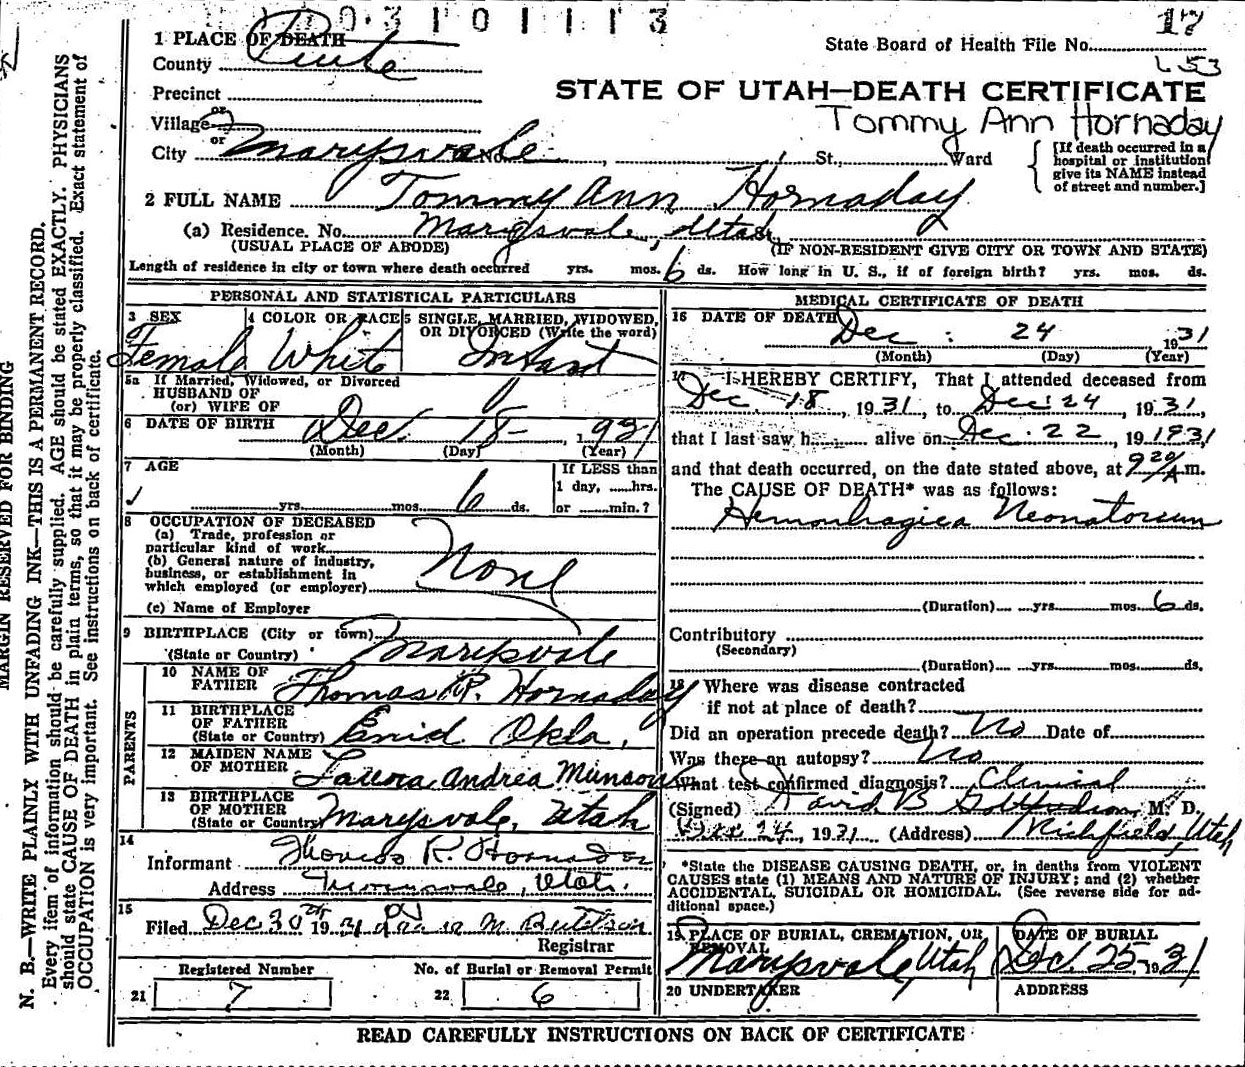 0310111 3
17
1 PLACE OF DEATH
State Board of Health File No.
County Piute
653
Precinct
STATE OF UTAH—DEATH CERTIFICATE
or
Village
Tommy Ann Hornaday
or
City Marysvale No. , St., Ward
[If death occurred in a hospital or institution give its NAME instead of street and number.]
2 FULL NAME Tommy Ann Hornaday
(a) Residence. No. Marysvale, Utah St.,
(USUAL PLACE OF ABODE) (IF NON-RESIDENT GIVE CITY OR TOWN AND STATE)
Length of residence in city or town where death occurred yrs. mos. 6 ds. How long in U. S., if of foreign birth? yrs. mos. ds.
PERSONAL AND STATISTICAL PARTICULARS
3 SEX 4 COLOR OR RACE 5 SINGLE, MARRIED, WIDOWED, OR DIVORCED (Write the word)
Female White Infant
5a If Married, Widowed, or Divorced
HUSBAND OF
(or) WIFE OF
6 DATE OF BIRTH Dec. 18-, 1931
(Month) (Day) (Year)
7 AGE
If LESS than
1 day, ......hrs.
yrs. mos. 6 ds. or ......min.?
8 OCCUPATION OF DECEASED
(a) Trade, profession or
particular kind of work
(b) General nature of industry,
business, or establishment in
which employed (or employer)
None
(c) Name of Employer
9 BIRTHPLACE (City or town)
(State or Country) Marysvale
PARENTS
10 NAME OF
FATHER Thomas R. Hornaday
11 BIRTHPLACE
OF FATHER
(State or Country) Enid Okla.
12 MAIDEN NAME
OF MOTHER Andrea Munson
13 BIRTHPLACE
OF MOTHER
(State or Country) Marysvale, Utah
14
Informant Thomas R. Hornaday
Address Marysvale, Utah.
15
Filed Dec 30th 1931
Registrar
Registered Number No. of Burial or Removal Permit
21 7 22 6
MEDICAL CERTIFICATE OF DEATH
16 DATE OF DEATH Dec. 24 1931
(Month) (Day) (Year)
17 I HEREBY CERTIFY, That I attended deceased from
Dec. 18, 1931, to Dec. 24, 1931,
that I last saw h...... alive on Dec. 22, 19 1931
and that death occurred, on the date stated above, at 9 20/A m.
The CAUSE OF DEATH* was as follows:
Hemorrhagica Neonatorum
(Duration) yrs. mos. 6 ds.
Contributory
(Secondary)
(Duration) yrs. mos. ds.
18 Where was disease contracted
if not at place of death?
Did an operation precede death? No Date of
Was there an autopsy? No
What test confirmed diagnosis? Clinical
(Signed) David B Gottfredson, M. D.
Dec 24, 1931 (Address) Richfield, Utah
*State the DISEASE CAUSING DEATH, or, in deaths from VIOLENT
CAUSES state (1) MEANS AND NATURE OF INJURY; and (2) whether
ACCIDENTAL, SUICIDAL OR HOMICIDAL. (See reverse side for ad-
ditional space.)
19 PLACE OF BURIAL, CREMATION, OR REMOVAL DATE OF BURIAL
Marysvale, Utah Dec. 25, 1931
20 UNDERTAKER ADDRESS
READ CAREFULLY INSTRUCTIONS ON BACK OF CERTIFICATE
MARGIN RESERVED FOR BINDING
N. B.—WRITE PLAINLY WITH UNFADING INK—THIS IS A PERMANENT RECORD.
Every item of information should be carefully supplied. AGE should be stated EXACTLY. PHYSICIANS
should state CAUSE OF DEATH in plain terms, so that it may be properly classified. Exact statement of
OCCUPATION is very important. See instructions on back of certificate.